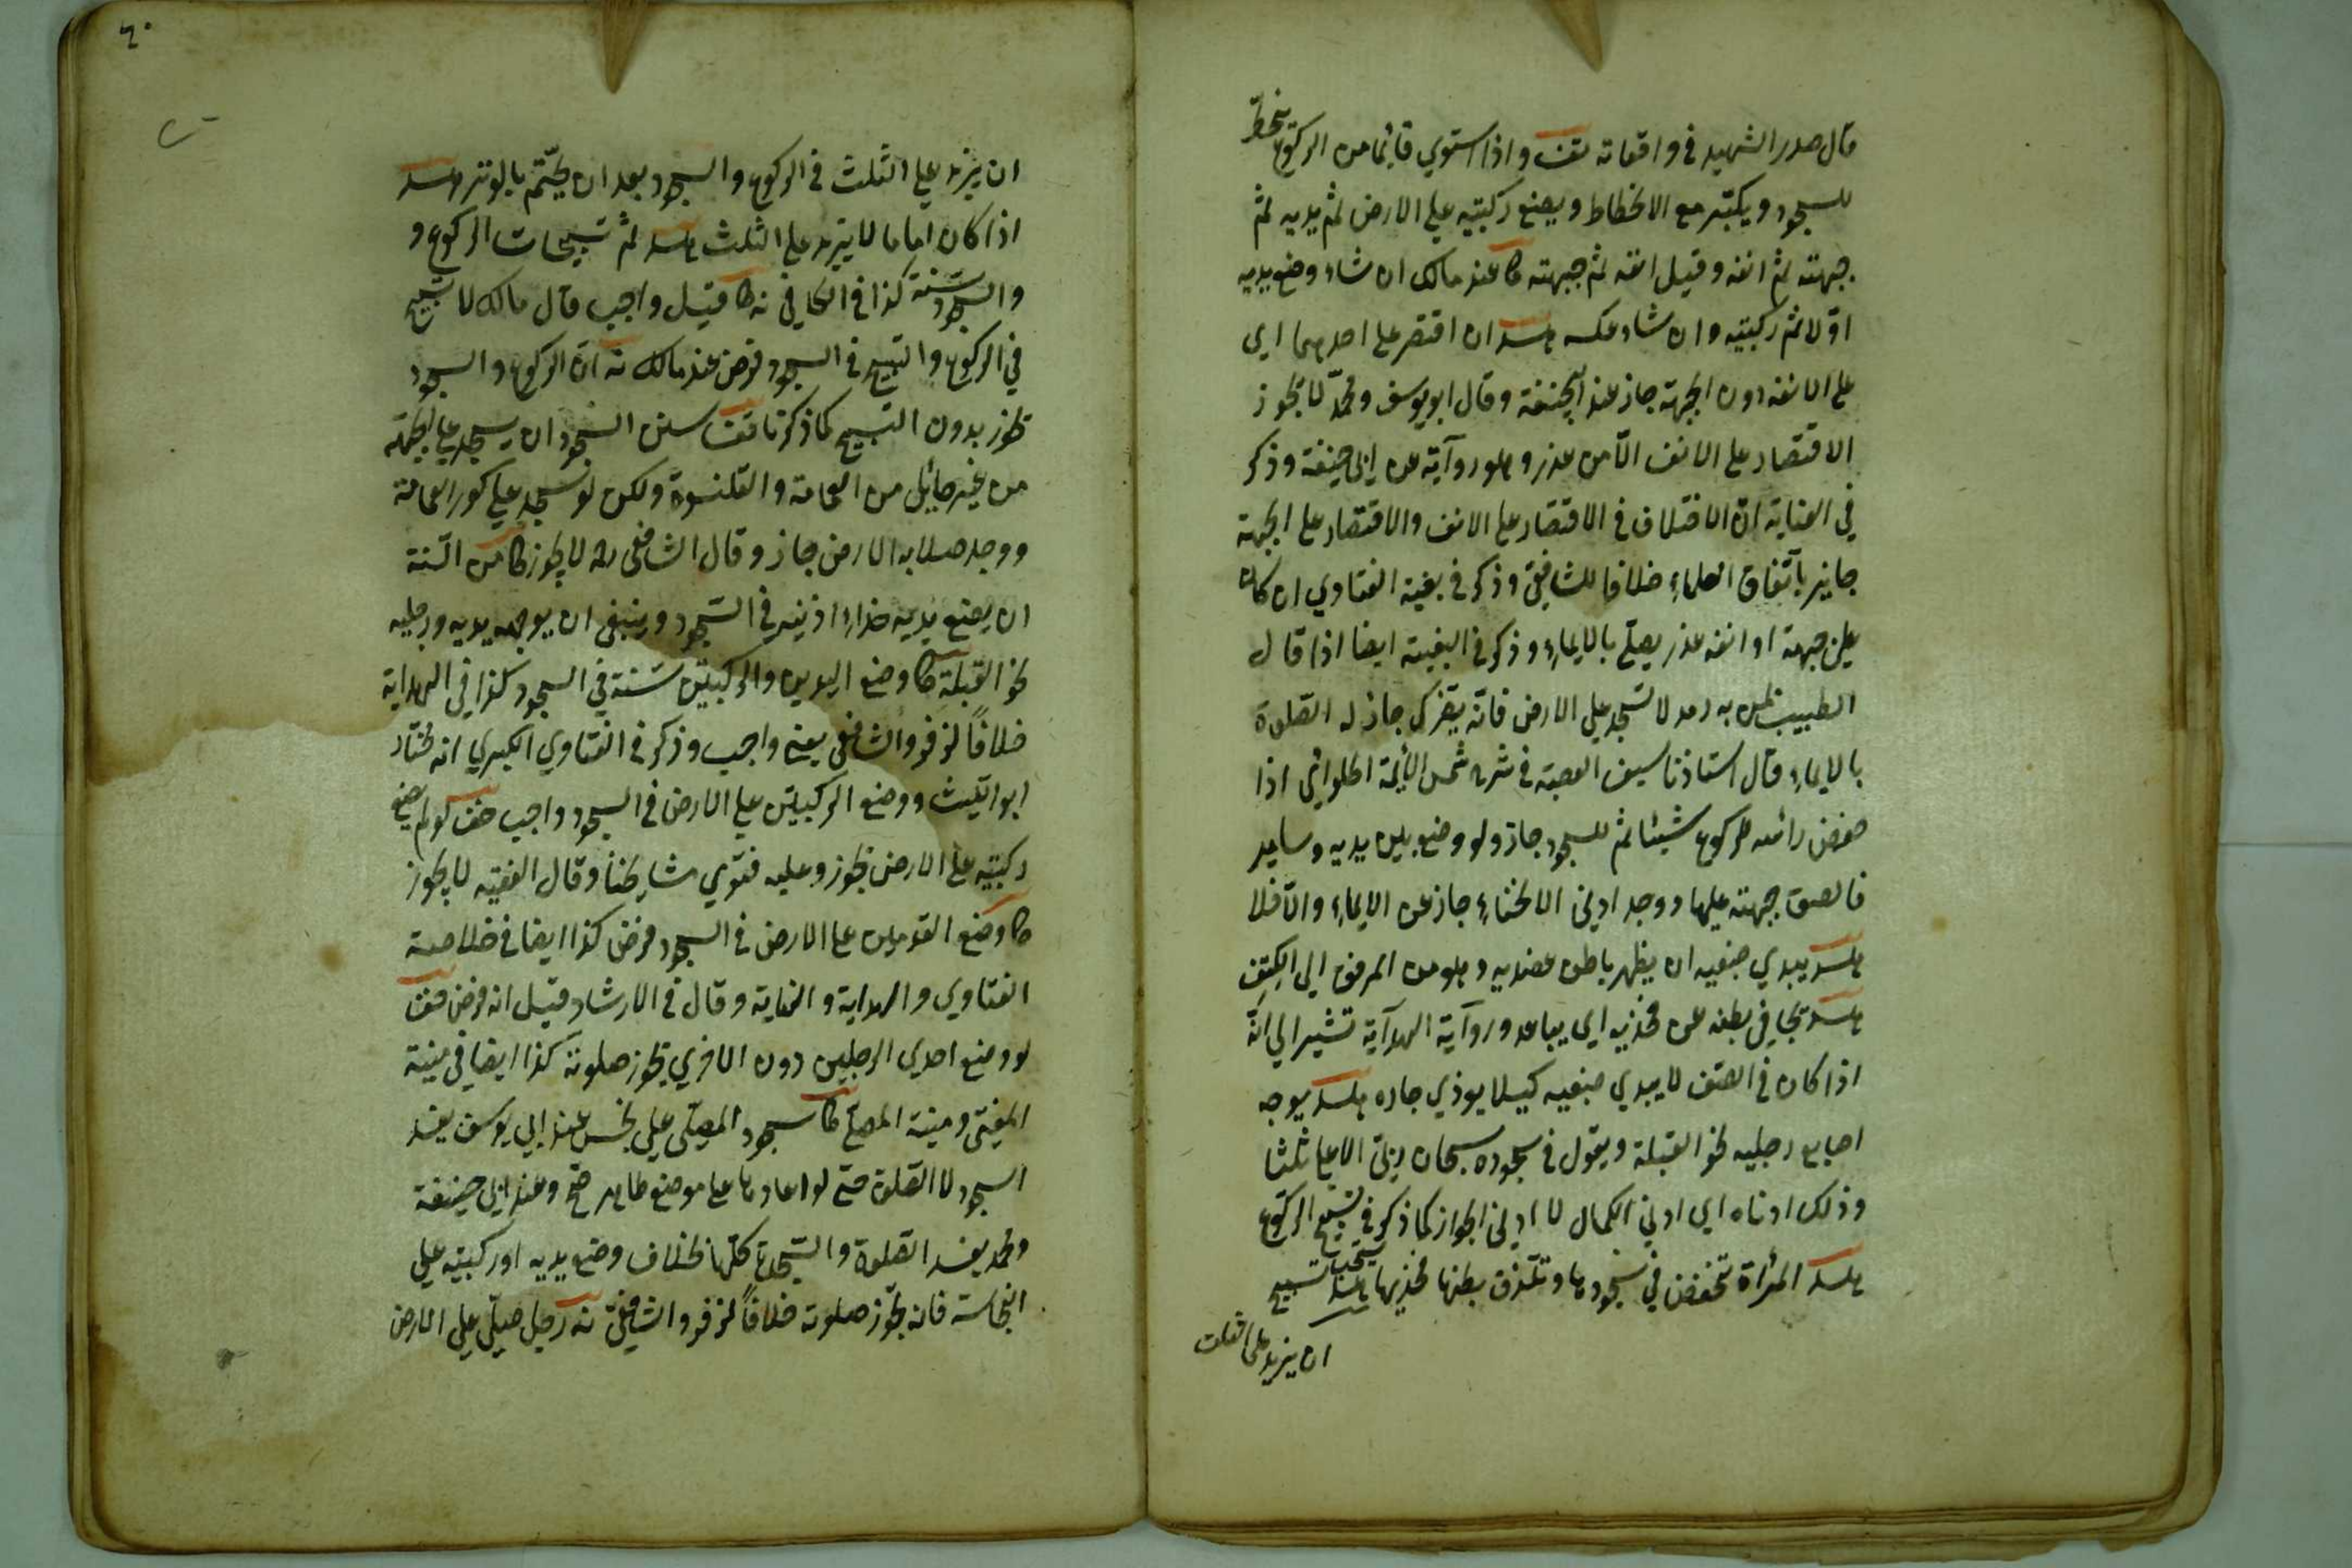 قال صدر الشهيد في واقعاته تف واذا استوي قائما من الركوع ينحط
للسجود ويكبّر مع الانحطاط ويضع ركبتيه علي الارض ثم يديه ثم
جبهته ثم انفه وقيل انفه ثم جبهته كا عند مالك ان شاء وضع يديه
اوّلا ثم ركبتيه وان شاء عكسه هسد ان اقتصر علي احدهما اي
علي الانفه دون الجبهة جاز عند ابيحنيفة وقال ابويوسف ومحمّد لا يجوز
الاقتصار علي الانف الّا من عذر وهو رواية عن ابي حنيفة وذكر
في العناية انّ الاختلاف في الاقتصار علي الانف والاقتصار علي الجبهة
جايز باتّفاق العلماء خلافا للشافعيّ وذكر في بغية الفتاوي ان كان
علي جبهة او انفه عذر يصلّي بالايماء وذكر في البغية ايضا اذا قال
الطبيب لمن به رمد لا تسجد علي الارض فانّه يضرك جاز له الصّلوة
بالايماء قال استاذنا سيف العصبة في شرح شمس الائمة الحلواني اذا
خفض رائسه للركوع شيئا ثم للسجود جاز ولو وضع بين يديه وسايد
فالصق جبهته عليها ووجد ادني الانحناء جاز عن الايماء والّا فلا
هسد يبدي ضبعيه ان يظهر باطن عضديه وهو من المرفق الي الكتف
هسد يجافي بطنه عن فخذيه اي يباعد ورواية الهداية تشير الي انّه
اذا كان في الصّف لا يبدي ضبعيه كيلا يوذي جاره هسد يوجه
اصابع رجليه نحو القبلة ويقول في سجوده سبحان ربّي الاعلي ثلثا
وذلك ادناه اي ادني الكمال لا ادني الجواز كما ذكر في تسبيح الركوع
هسد المرأة تنخفض في سجودها وتلزق بطنها فخذيها هسد يستحب تسبيح
ان يزيد علي الثلث
٦٠
ان يزيد علي الثلث في الركوع والسجود بعد ان يختّم بالوتر هسد
اذا كان اماما لا يزيد علي الثلث هسد ثم تسبيحات الركوع و
والسجود سنة كذا في الكافي نه كا قيل واجب قال مالك لا تسبيح
في الركوع والتسبيح في السجود فرض عند مالك نه انّ الركوع والسجود
يجوز بدون التسبيح كما ذكرنا تف سنن السجود ان يسجد علي الجبهة
من غير حائل من العمامة والقلنسوة ولكن لو سجد علي كور العمامة
ووجد صلابه الارض جاز وقال الشافعي رح لا يجوز كا من السّنة
ان يضع يديه حذاء اذنيه في السّجود وينبغي ان يوجه يديه ورجليه
نحو القبلة كا وضع اليدين والركبتين سنة في السجود كذا في الهداية
خلافاً لزفر والشافعي يعني واجب وذكر في الفتاوي الكبري انه مختار
ابو اللّيث ووضع الركبتين علي الارض في السجود واجب خف لو لم يضع
ركبتيه علي الارض يجوز وعليه فتوي مشايخنا وقال الفقيه لا يجوز
كا وضع القدمين علي الارض في السجود فرض كذا ايضا في خلاصة
الفتاوي والهداية والعناية وقال في الارشاد قيل انه فرض خف
لو وضع احدي الرجلين دون الاخري يجوز صلوته كذا ايضا في منية
المفتي ومنية المصلّي كا سجود المصلّي علي نجس عند ابي يوسف يفسد
السجود لا الصّلوة حتي لو اعادها علي موضع طاهر صح وعند ابي حنيفة
ومحمد يفسد الصلوة والسّجدة كلّها بخلاف وضع يديه او ركبتيه علي
النجاسة فانه يجوّز صلوته خلافاً لزفر والشافعيّ نه رجل صلّي علي الارض